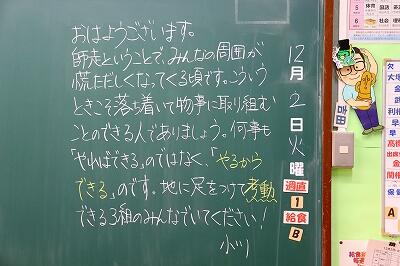 おはようございます。
師走ということで、みんなの周囲が
慌ただしくなってくる頃です。こういう
ときこそ落ち着いて物事に取り組む
ことのできる人でありましょう。何事も
「やればできる」のではなく、「やるから
できる」のです。地に足をつけて考動
できる3組のみんなでいてください!
小川
12月2日火曜
週直
1
給食
B
5
国語
6
社会
欠
出席
A